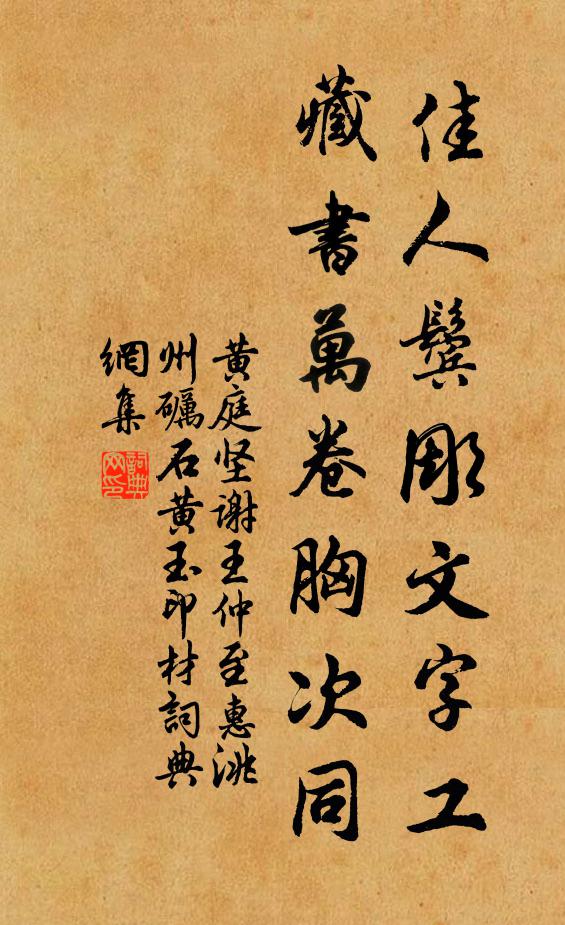 佳人鬓彫文字工
藏書萬卷胸次同
黄庭坚謝王仲至惠洮
州礪石黄玉印材詞典
網集
詞典
网印